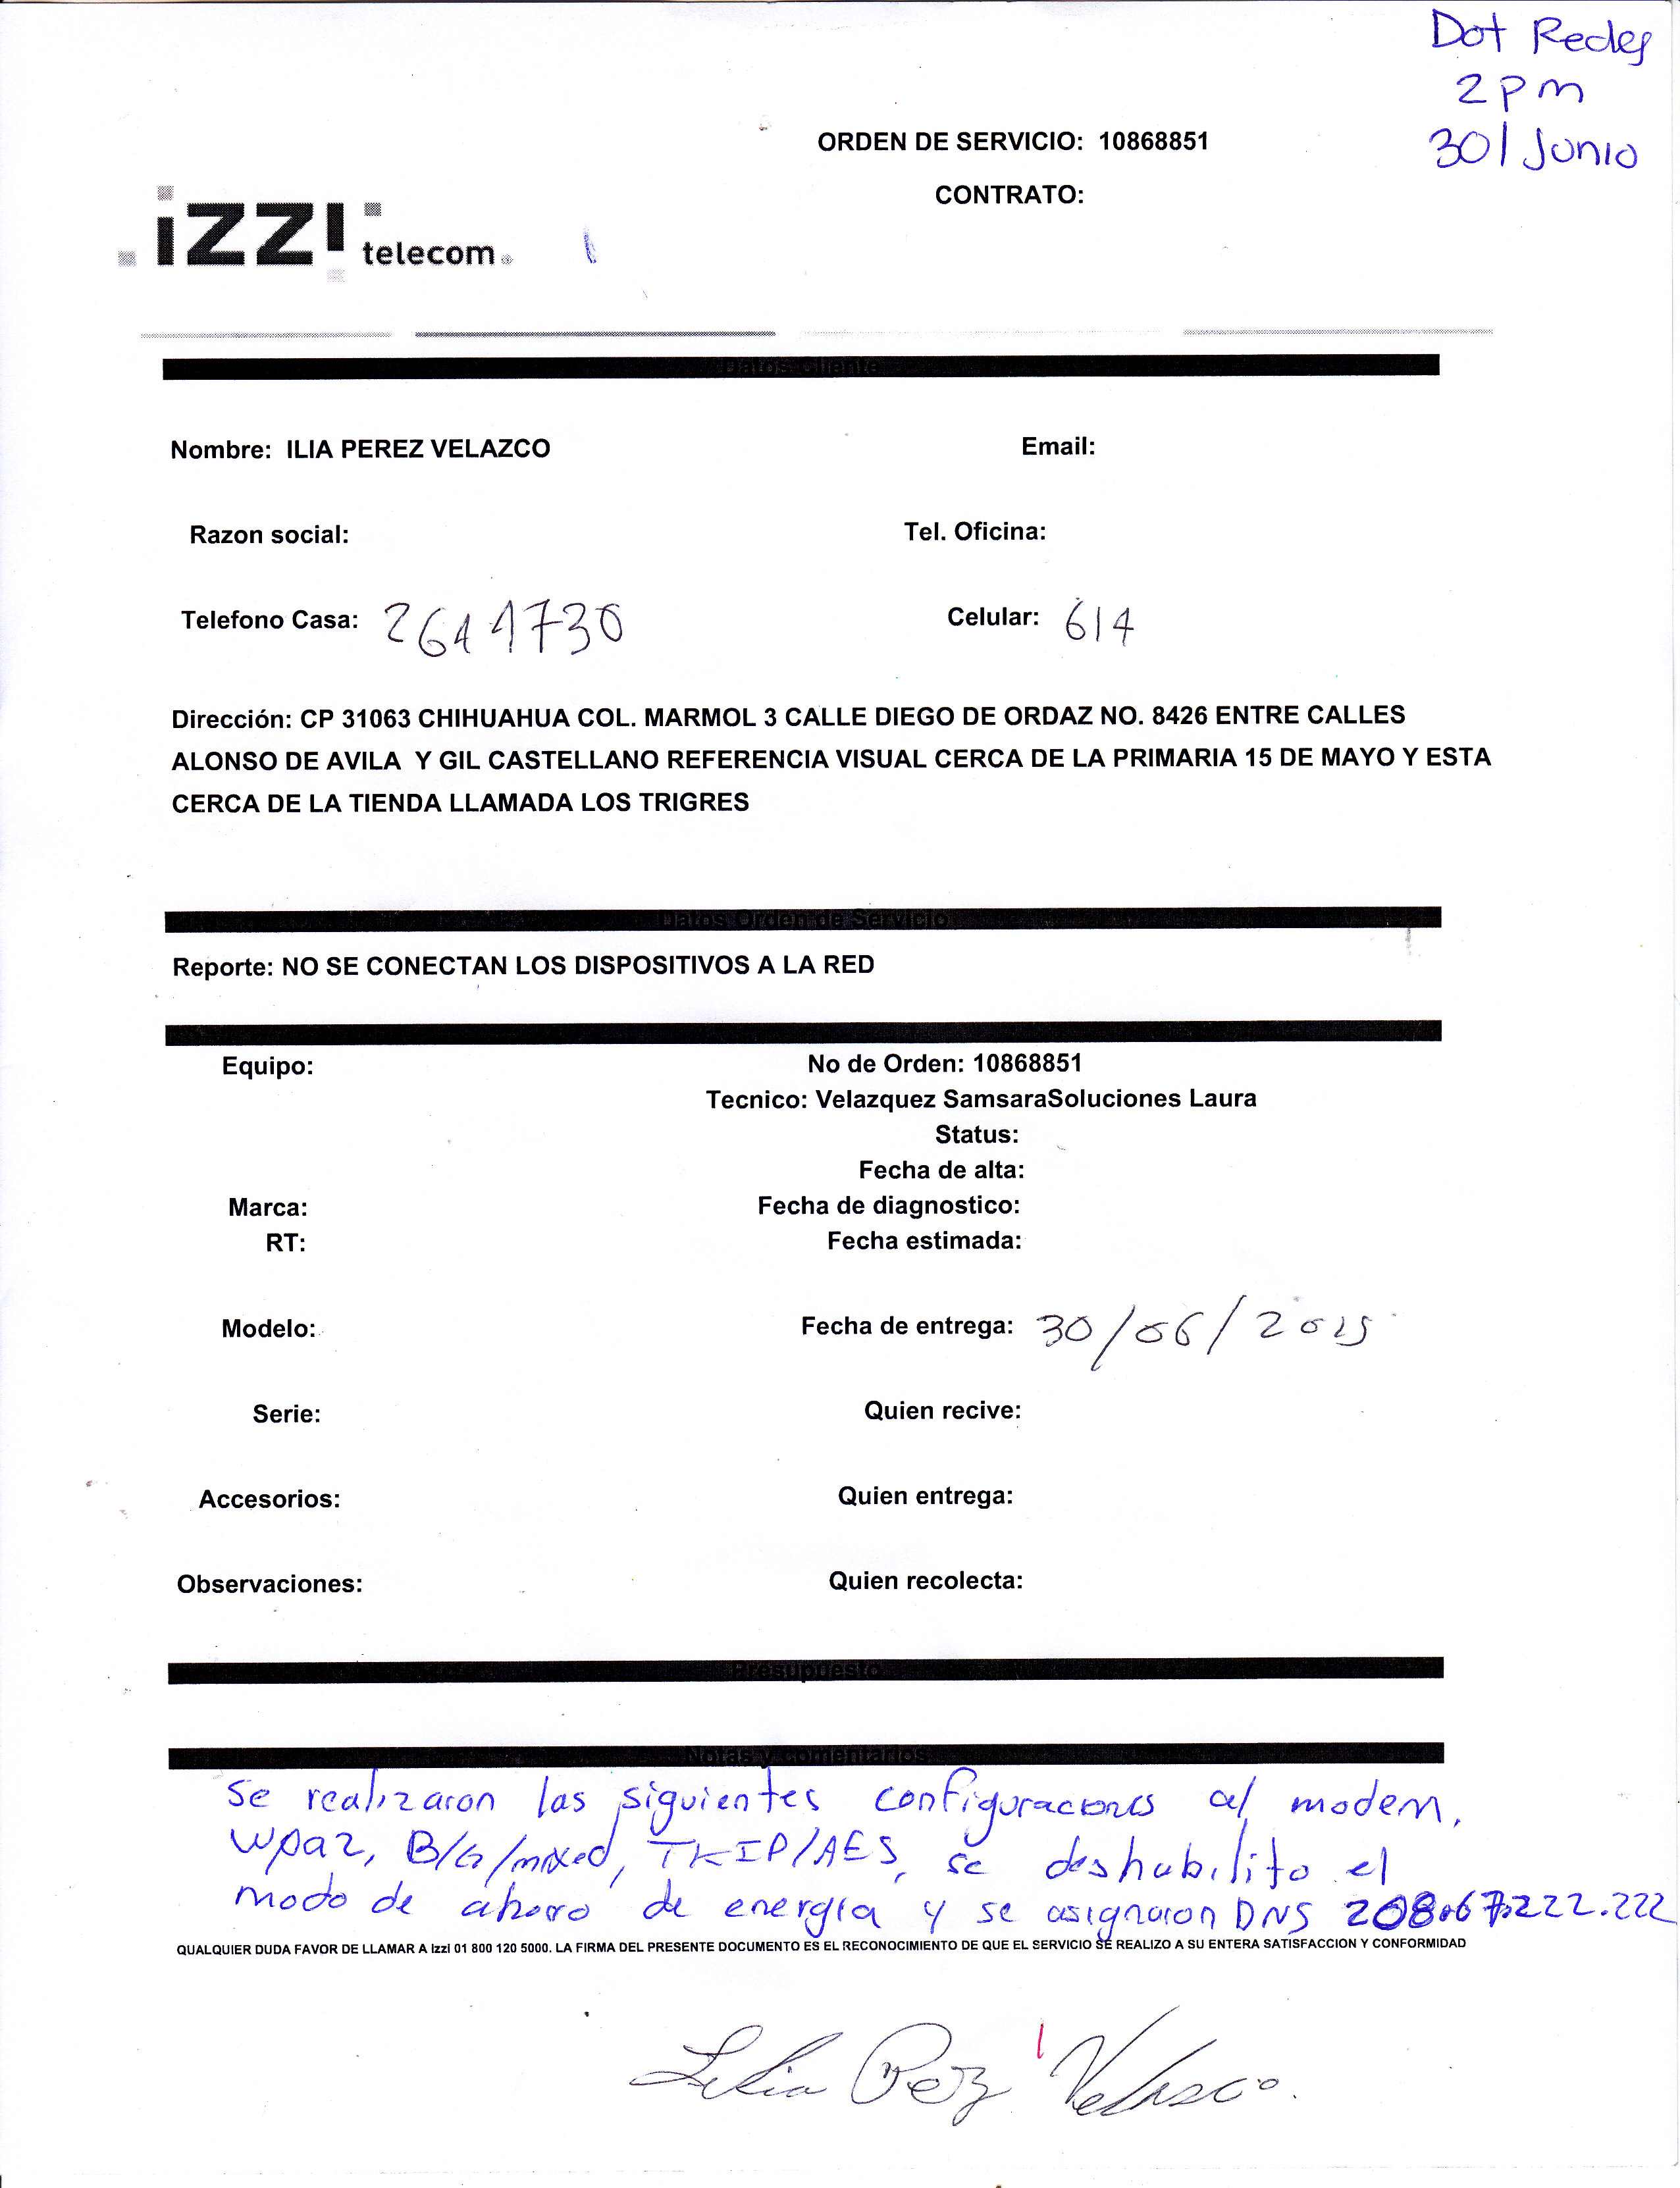 Dot Redes
2 pm
30/Junio
ORDEN DE SERVICIO: 10868851
CONTRATO:
izzi telecom
Datos Cliente
Nombre: ILIA PEREZ VELAZCO Email:
Razon social: Tel. Oficina:
Telefono Casa: 2611730 Celular: 614
Dirección: CP 31063 CHIHUAHUA COL. MARMOL 3 CALLE DIEGO DE ORDAZ NO. 8426 ENTRE CALLES
ALONSO DE AVILA Y GIL CASTELLANO REFERENCIA VISUAL CERCA DE LA PRIMARIA 15 DE MAYO Y ESTA
CERCA DE LA TIENDA LLAMADA LOS TRIGRES
Datos Orden de Servicio
Reporte: NO SE CONECTAN LOS DISPOSITIVOS A LA RED
Equipo: No de Orden: 10868851
Tecnico: Velazquez SamsaraSoluciones Laura
Status:
Fecha de alta:
Marca: Fecha de diagnostico:
RT: Fecha estimada:
Modelo: Fecha de entrega: 30/06/2015
Serie: Quien recive:
Accesorios: Quien entrega:
Observaciones: Quien recolecta:
Presupuesto
Notas y comentarios
Se realizaron las siguientes configuraciones al modem,
wpa2, B/G/mixed, TKIP/AES, se deshabilito el
modo de ahorro de energía y se asignaron DNS 208.67.222.222
QUALQUIER DUDA FAVOR DE LLAMAR A Izzi 01 800 120 5000. LA FIRMA DEL PRESENTE DOCUMENTO ES EL RECONOCIMIENTO DE QUE EL SERVICIO SE REALIZO A SU ENTERA SATISFACCION Y CONFORMIDAD
Lilia Perez Velasco.